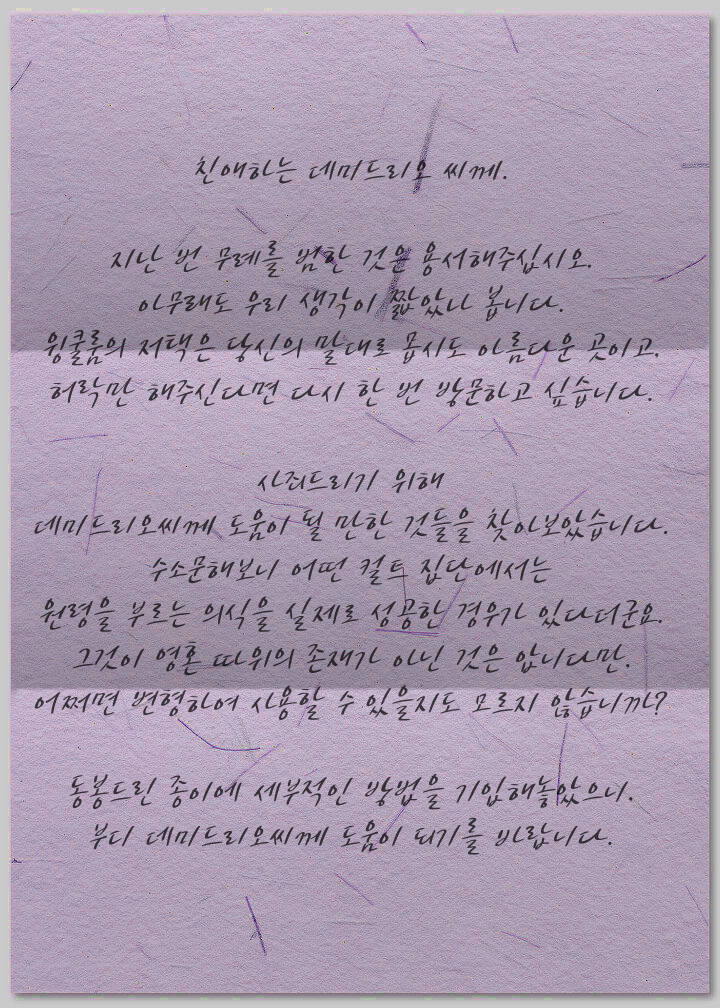 친애하는 데미드리오 씨께.
지난 번 무례를 범한 것은 용서해주십시오.
아무래도 우리 생각이 짧았나 봅니다.
윙쿨룸의 저택은 당신의 말대로 몹시도 아름다운 곳이고.
허락만 해주신다면 다시 한 번 방문하고 싶습니다.
사죄드리기 위해
데미드리오씨께 도움이 될 만한 것들을 찾아보았습니다.
수소문해보니 어떤 컬트 집단에서는
원령을 부르는 의식을 실제로 성공한 경우가 있다더군요.
그것이 영혼 따위의 존재가 아닌 것은 압니다만.
어쩌면 변형하여 사용할 수 있을지도 모르지 않습니까?
동봉드린 종이에 세부적인 방법을 기입해놓았으니.
부디 데미드리오씨께 도움이 되기를 바랍니다.